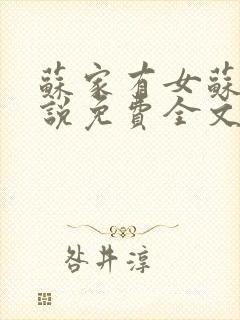 蘇家有女蘇
說免費全文
咎井淳